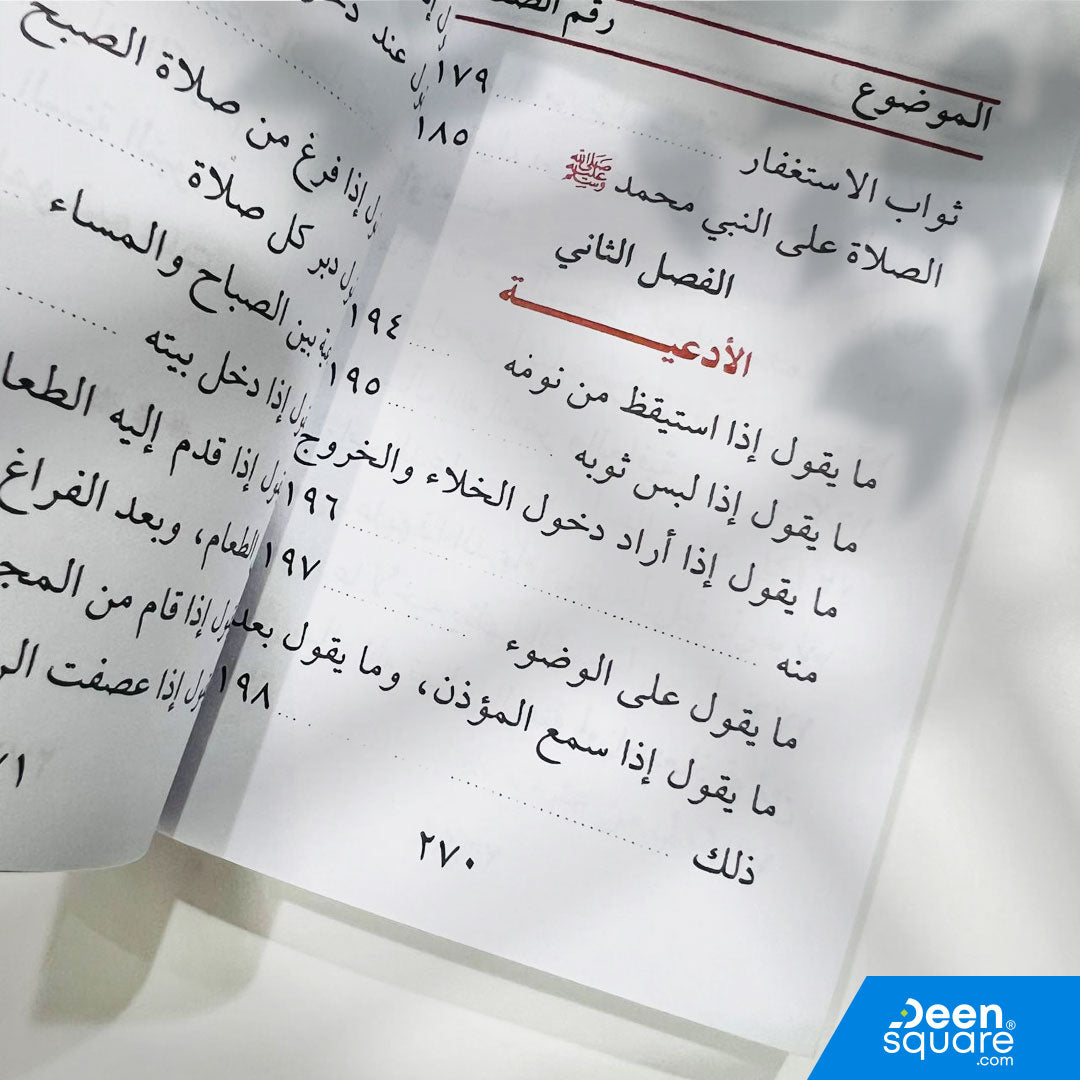 الموضوع
رقم
ثواب الاستغفار ........ ١٧٩
الصلاة على النبي محمد ﷺ ........ ١٨٥
الفصل الثاني
الأدعيـــــة
ما يقول إذا استيقظ من نومه ........ ١٩٤
ما يقول إذا لبس ثوبه ........ ١٩٥
ما يقول إذا أراد دخول الخلاء والخروج
منه ........ ١٩٦
ما يقول على الوضوء ........ ١٩٧
ما يقول إذا سمع المؤذن، وما يقول بعد
ذلك ........ ١٩٨
٢٧٠
عند
إذا فرغ من صلاة الصبح
دبر كل صلاة
بين الصباح والمساء
إذا دخل بيته
إذا قدم إليه
الطعام، وبعد الفراغ
إذا قام من
إذا عصفت
Deen
square®
.com